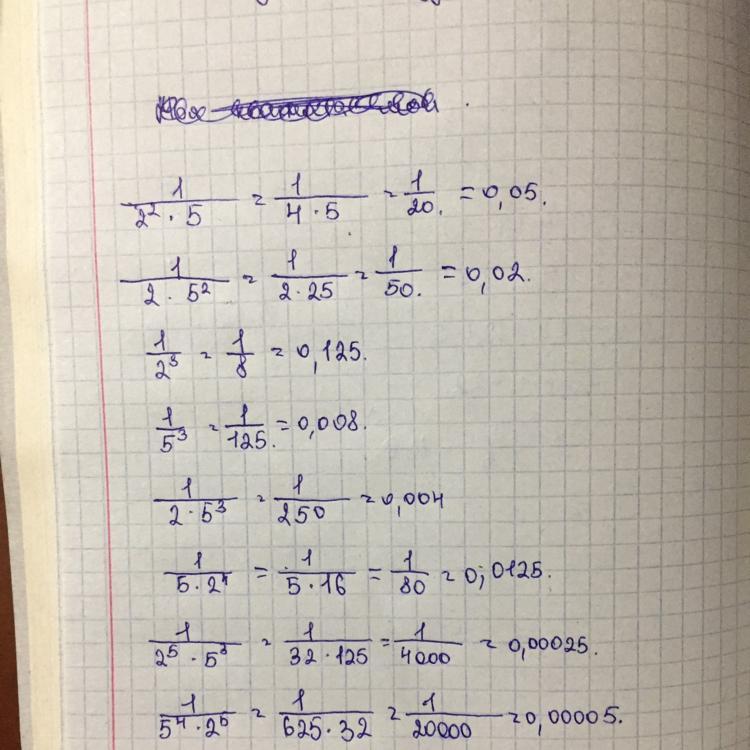 1/(2² · 5) = 1/(4 · 5) = 1/20. = 0,05.
1/(2 · 5²) = 1/(2 · 25) = 1/50. = 0,02.
1/2³ = 1/8 = 0,125.
1/5³ = 1/125. = 0,008.
1/(2 · 5³) = 1/250 = 0,004
1/(5 · 2⁴) = 1/(5 · 16) = 1/80 = 0,0125.
1/(2⁵ · 5³) = 1/(32 · 125) = 1/4000 = 0,00025.
1/(5⁴ · 2⁵) = 1/(625 · 32) = 1/20000 = 0,00005.